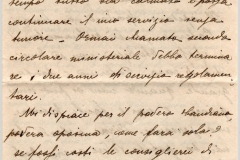 tempo tutto sia calmato e possa
continuare il mio servizio senza
timore - Ormai chiamata secondo
circolare ministeriale debbo termina
re i due anni di servizio regolamen
tari.
Mi dispiace per il podere
povera, come farà sola e
se posso così le consigliere di